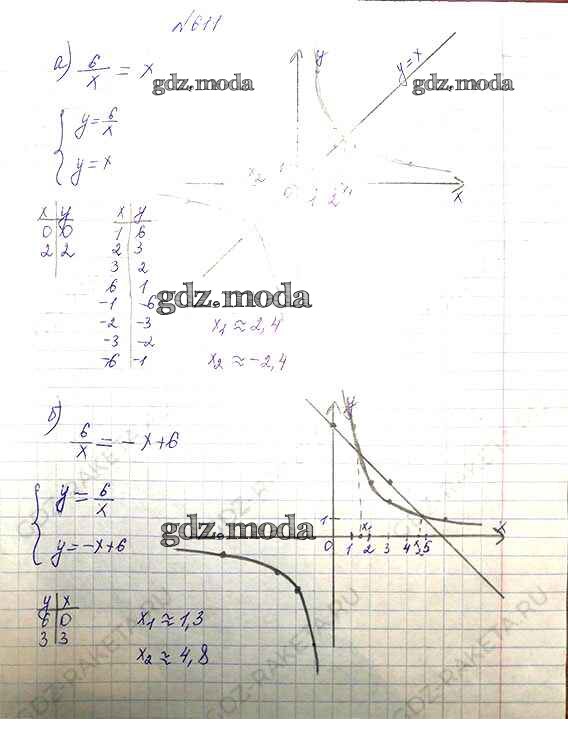 №611
а) 6/x = x
y
y=x
gdz.moda
gdz.moda
{ y = 6/x
y = x
x₂
0 1 2
x
x | y
0 | 0
2 | 2
x | y
1 | 6
2 | 3
3 | 2
6 | 1
-1 | -6
-2 | -3
-3 | -2
-6 | -1
gdz.moda
x₁ ≈ 2,4
x₂ ≈ -2,4
б) 6/x = -x+6
y
{ y = 6/x
y = -x+6
gdz.moda
1
0 1 x₁ 2 3 4 x₂ 5
x
y | x
6 | 0
3 | 3
x₁ ≈ 1,3
x₂ ≈ 4,8
GDZ-RAKETA.RU
GDZ-RAKETA.RU
GDZ-RAKETA.RU
GDZ-RAKETA.RU